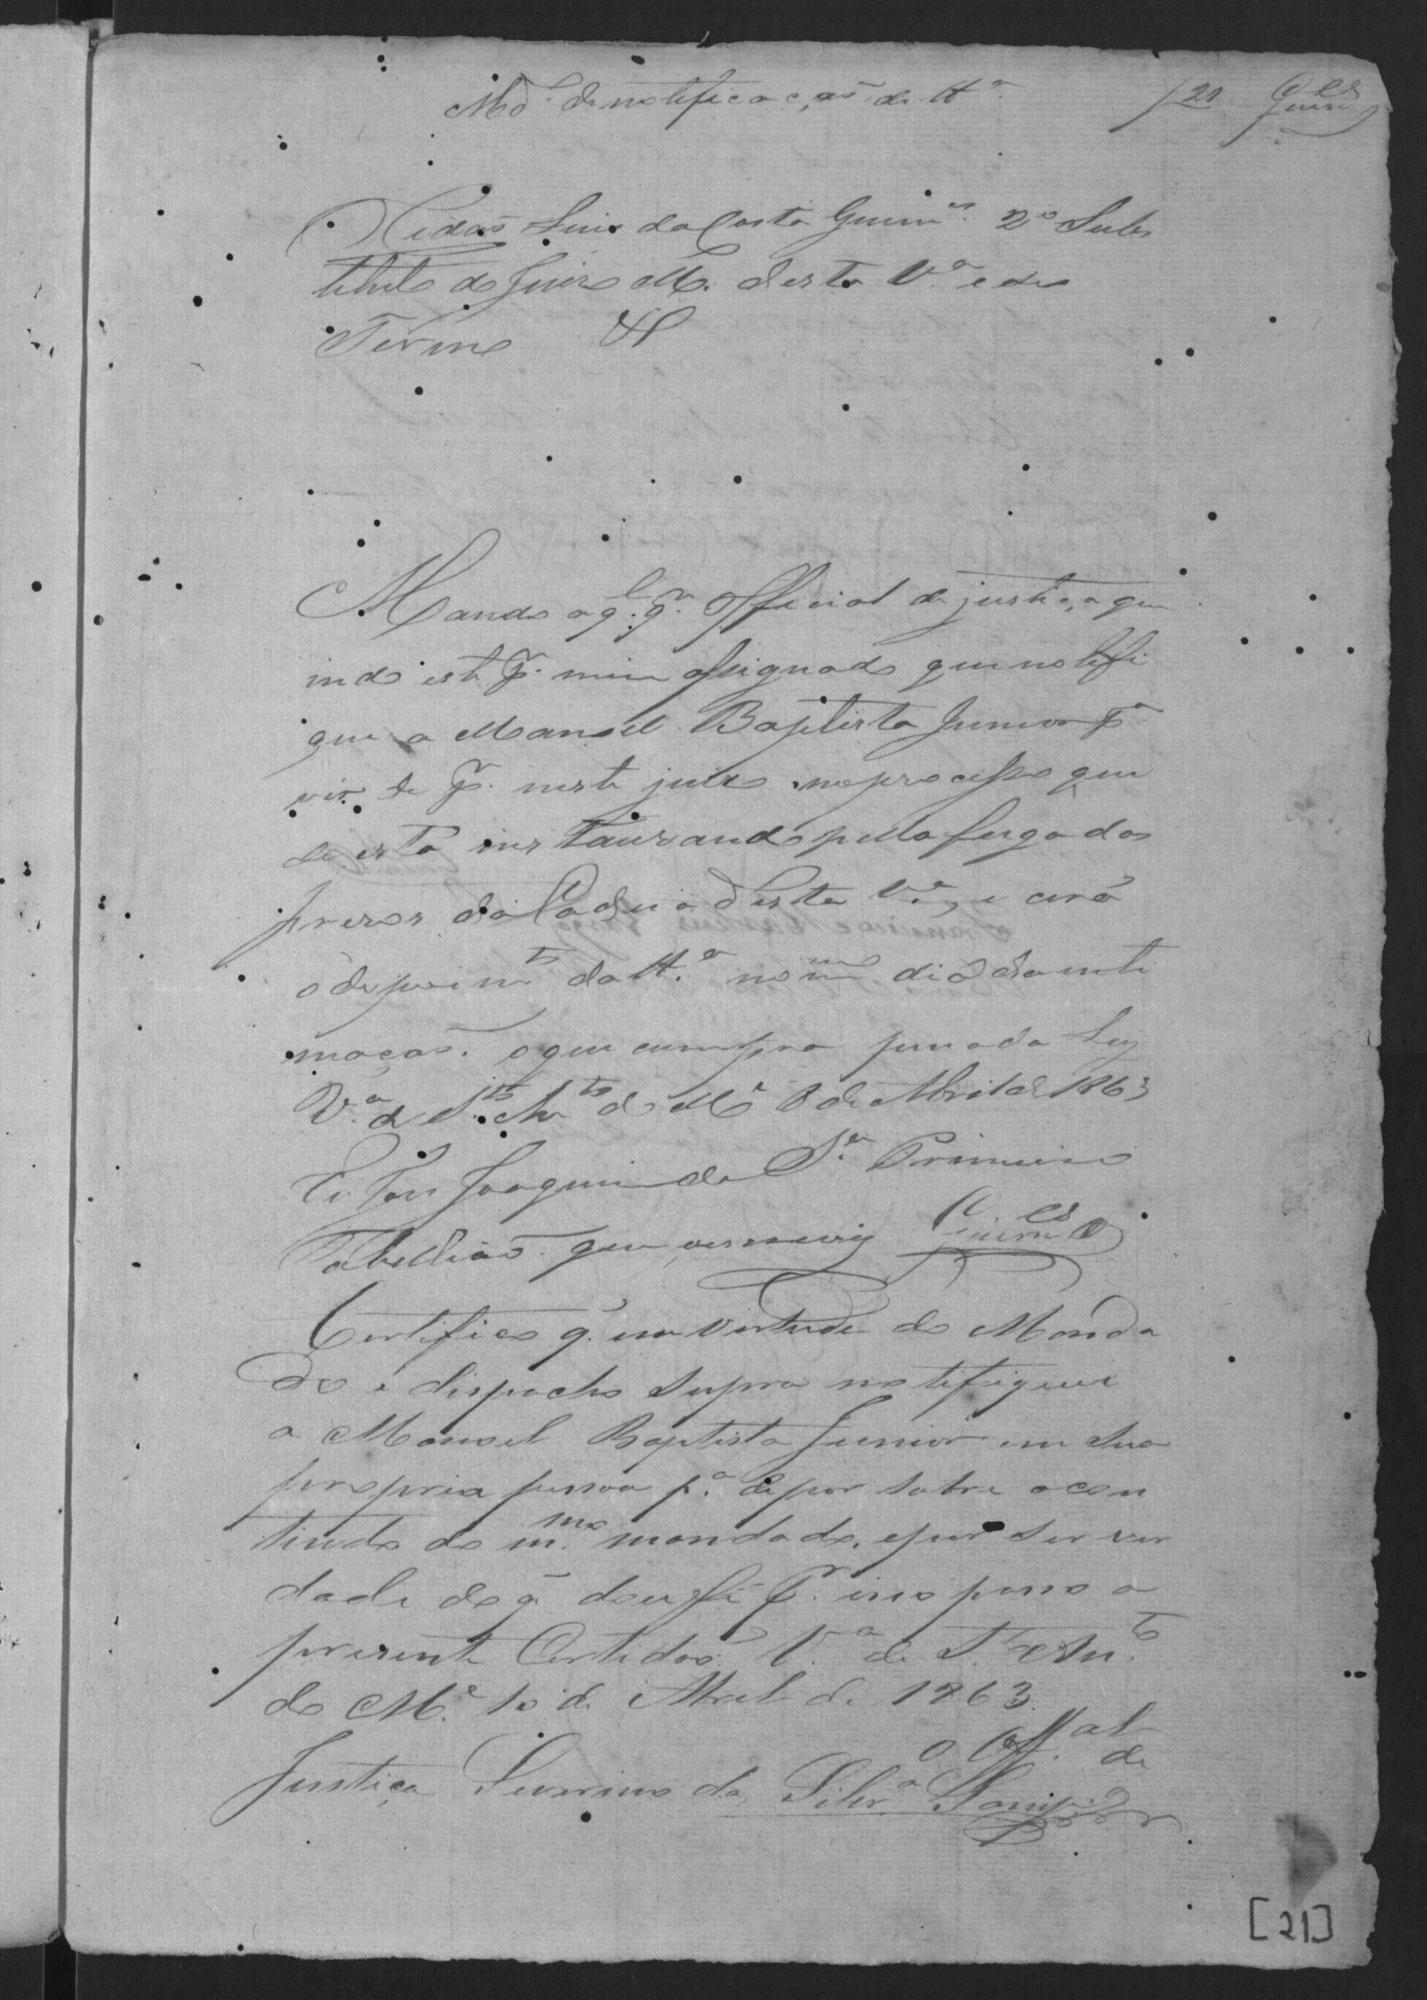 Md.º de notificação de tt.ª
21 Guim.es
Cidão Luis da Costa Guim.es 2º Subs
tituto do Juiz M. desta V.ª e seu
Termo &
Mando a q.l q.r Official de justiça que
indo este p.r mim assignado que notefi
que a Manoel Baptista Junior p.ª
vir de p.r neste juizo no processo que
se está instaurando pella fuga dos
prezos da Cadeia desta V.ª, e
o depoim.to da tt.ª no m.mo dia da inti
mação. o que cumpra pena da Ley
V.ª de S.to An.to do M.e 8 de Abril de 1863
Eu Joaquim da S.ª Primeiro
Tabellião que escrevy Guim.es
Certifico q. em vertude do Manda
do e dispacho supra notifiquei
a Manoel Baptista Junior em sua
propria pessoa p.ª depor sobre o con
tiudo do m.mo mandado, e por ser ver
dade do q. dou fé p.r isso passo a
prezente Certidão. V.ª de S.to An.to
do M.e 10 de Abril de 1863.
O Off.al de
Justiça Severino da Silv.ª
[21]